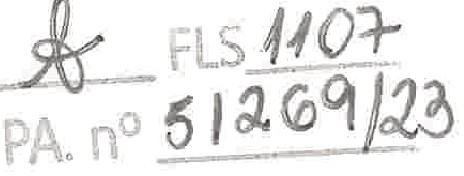 FLS 1107
PA. nº 51269/23